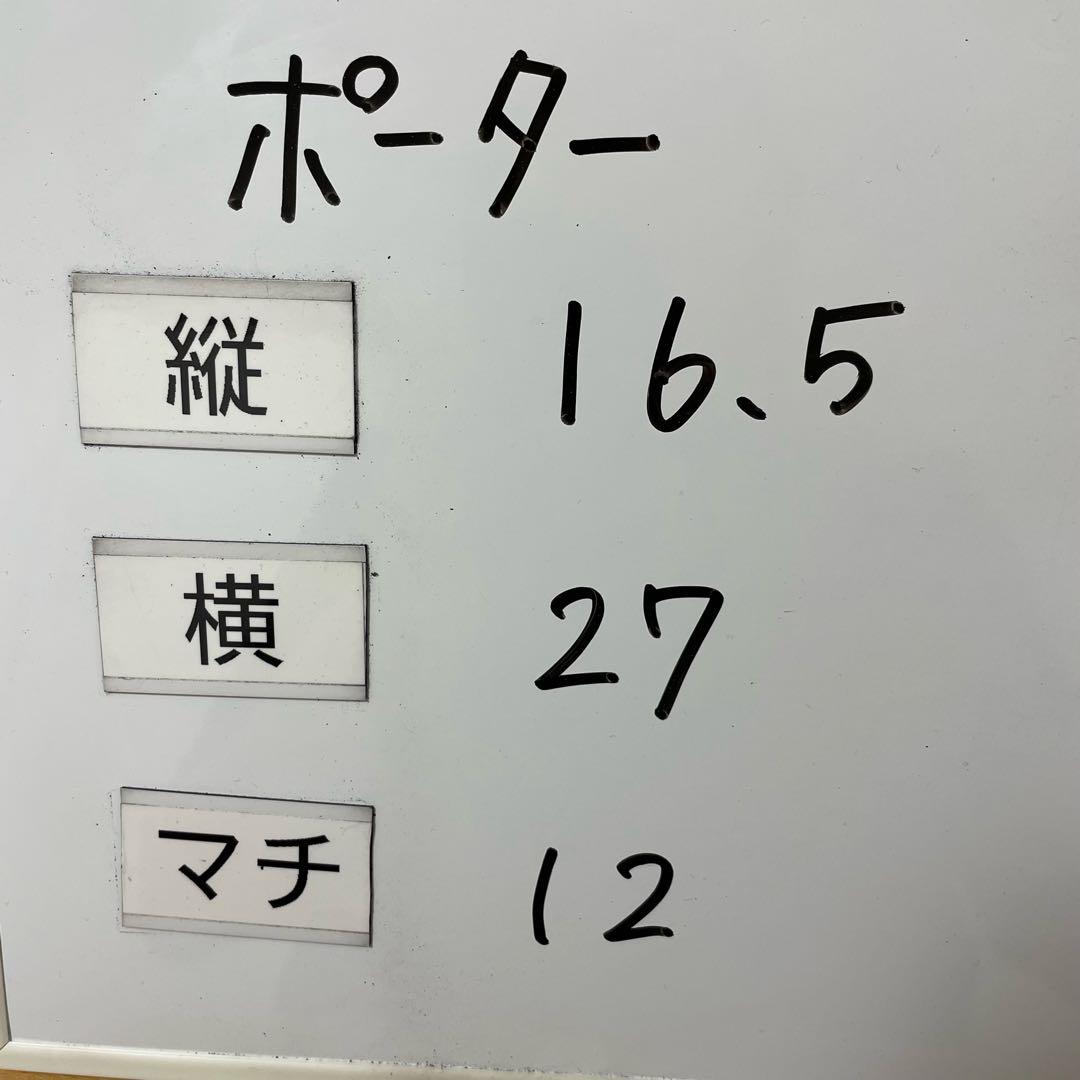 ポーター
縦 16.5
横 27
マチ 12